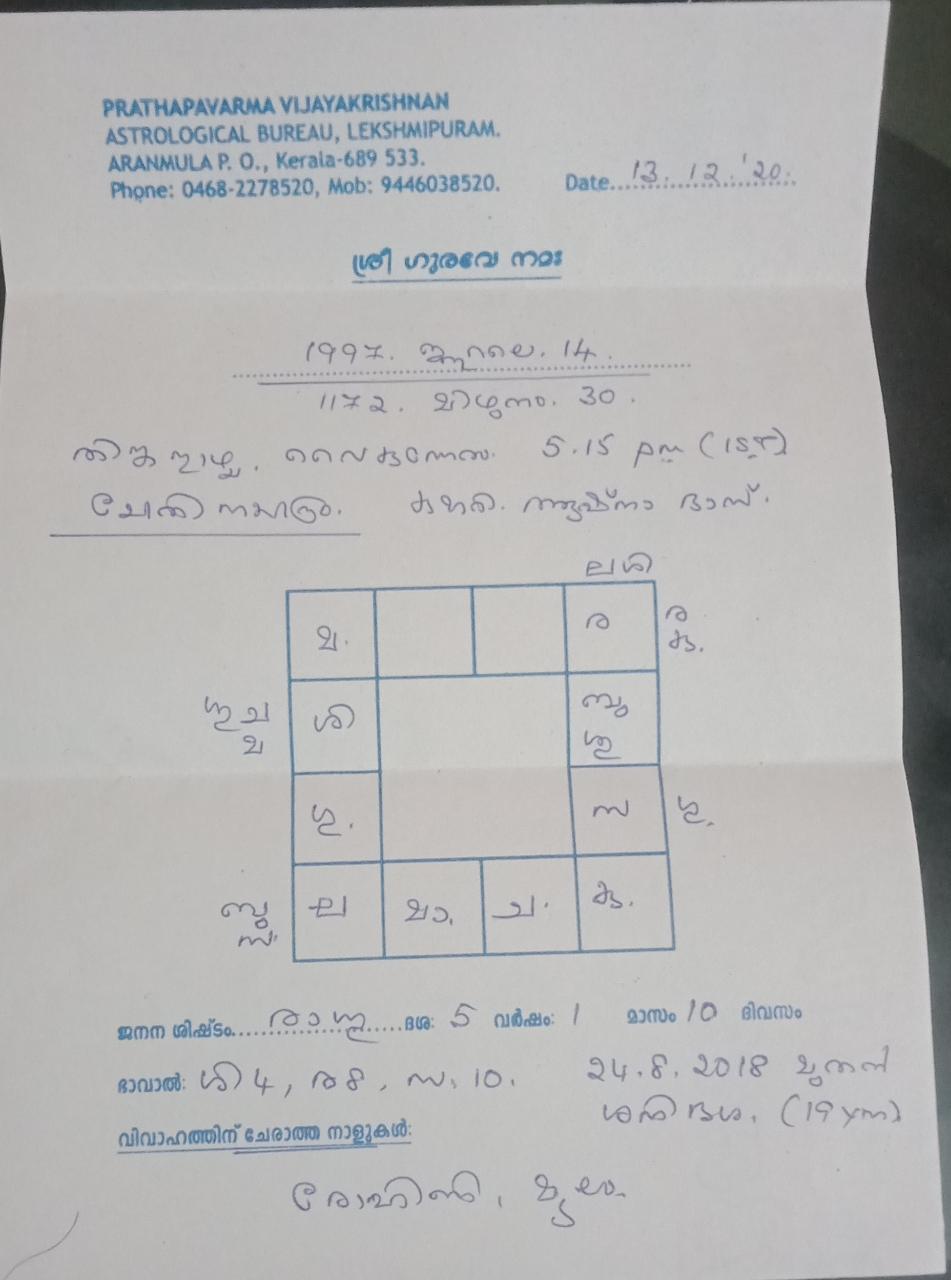 PRATHAPAVARMA VIJAYAKRISHNAN
ASTROLOGICAL BUREAU, LEKSHMIPURAM.
ARANMULA P. O., Kerala-689 533.
Phone: 0468-2278520, Mob: 9446038520.
Date....13.12.'20.
ശ്രീ ഗുരവേ നമഃ
1997. ജൂലൈ. 14.
1172. മിഥുനം. 30.
തിങ്കളാഴ്ച. വൈകുന്നേരം 5.15 pm (IST)
ചോതി നക്ഷത്രം. കുമാരി. ദാസ്.
ല ശി
മ. ര ര
കു.
ഗു ച
മ ശി ബു
ശു
ഗു. സ ശു.
ബു
സ. ല മാ. ച. കു.
ജനന ശിഷ്ടം....രാഹു....ദശ: 5 വർഷം: 1 മാസം 10 ദിവസം
ഭാവാൽ: ശി 4, ര 8, സ. 10. 24.8.2018 മുതൽ
ശനിദശ. (19 yrs)
വിവാഹത്തിന് ചേരാത്ത നാളുകൾ:
രോഹിണി,